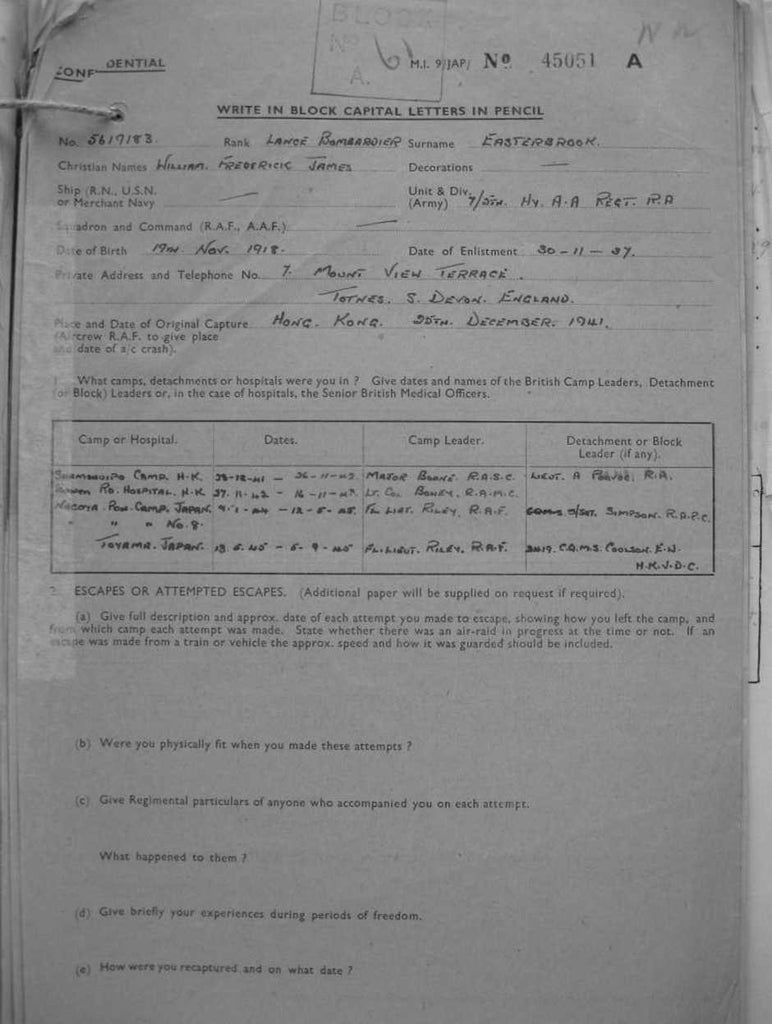 BLOCK
No 6
A.
CONFIDENTIAL
M.I. 9/JAP/ No 45051 A
WRITE IN BLOCK CAPITAL LETTERS IN PENCIL
No. 5619183. Rank LANCE BOMBARDIER Surname EASTERBROOK.
Christian Names WILLIAM. FREDERICK JAMES Decorations —
Ship (R.N., U.S.N. or Merchant Navy —
Unit & Div. (Army) 7/5TH. HY. A.A REGT. R.A
Squadron and Command (R.A.F., A.A.F.) —
Date of Birth 19TH NOV. 1918. Date of Enlistment 30-11-37.
Private Address and Telephone No. 7. MOUNT VIEW TERRACE.
TOTNES. S. DEVON. ENGLAND.
Place and Date of Original Capture HONG. KONG. 25TH. DECEMBER. 1941.
(Aircrew R.A.F. to give place
and date of a/c crash).
What camps, detachments or hospitals were you in ? Give dates and names of the British Camp Leaders, Detachment
(or Block) Leaders or, in the case of hospitals, the Senior British Medical Officers.
Camp or Hospital. Dates. Camp Leader. Detachment or Block Leader (if any).
SHAMSHUIPO CAMP. H-K. MAJOR BOONE R.A.S.C. LIEUT. A R.A.
BOWEN RD. HOSPITAL. H.K. LT. COL BOWEN. R.A.M.C.
NAGOYA POW. CAMP. JAPAN. FL LIEUT. RILEY. R.A.F. SIMPSON. R.A.P.C.
" " No. 8.
TOYAMA. JAPAN. FL. LIEUT. RILEY. R.A.F. C.Q.M.S. COOLSON. E.W.
H.K.V.D.C.
2. ESCAPES OR ATTEMPTED ESCAPES. (Additional paper will be supplied on request if required).
(a) Give full description and approx. date of each attempt you made to escape, showing how you left the camp, and
from which camp each attempt was made. State whether there was an air-raid in progress at the time or not. If an
escape was made from a train or vehicle the approx. speed and how it was guarded should be included.
(b) Were you physically fit when you made these attempts ?
(c) Give Regimental particulars of anyone who accompanied you on each attempt.
What happened to them ?
(d) Give briefly your experiences during periods of freedom.
(e) How were you recaptured and on what date ?